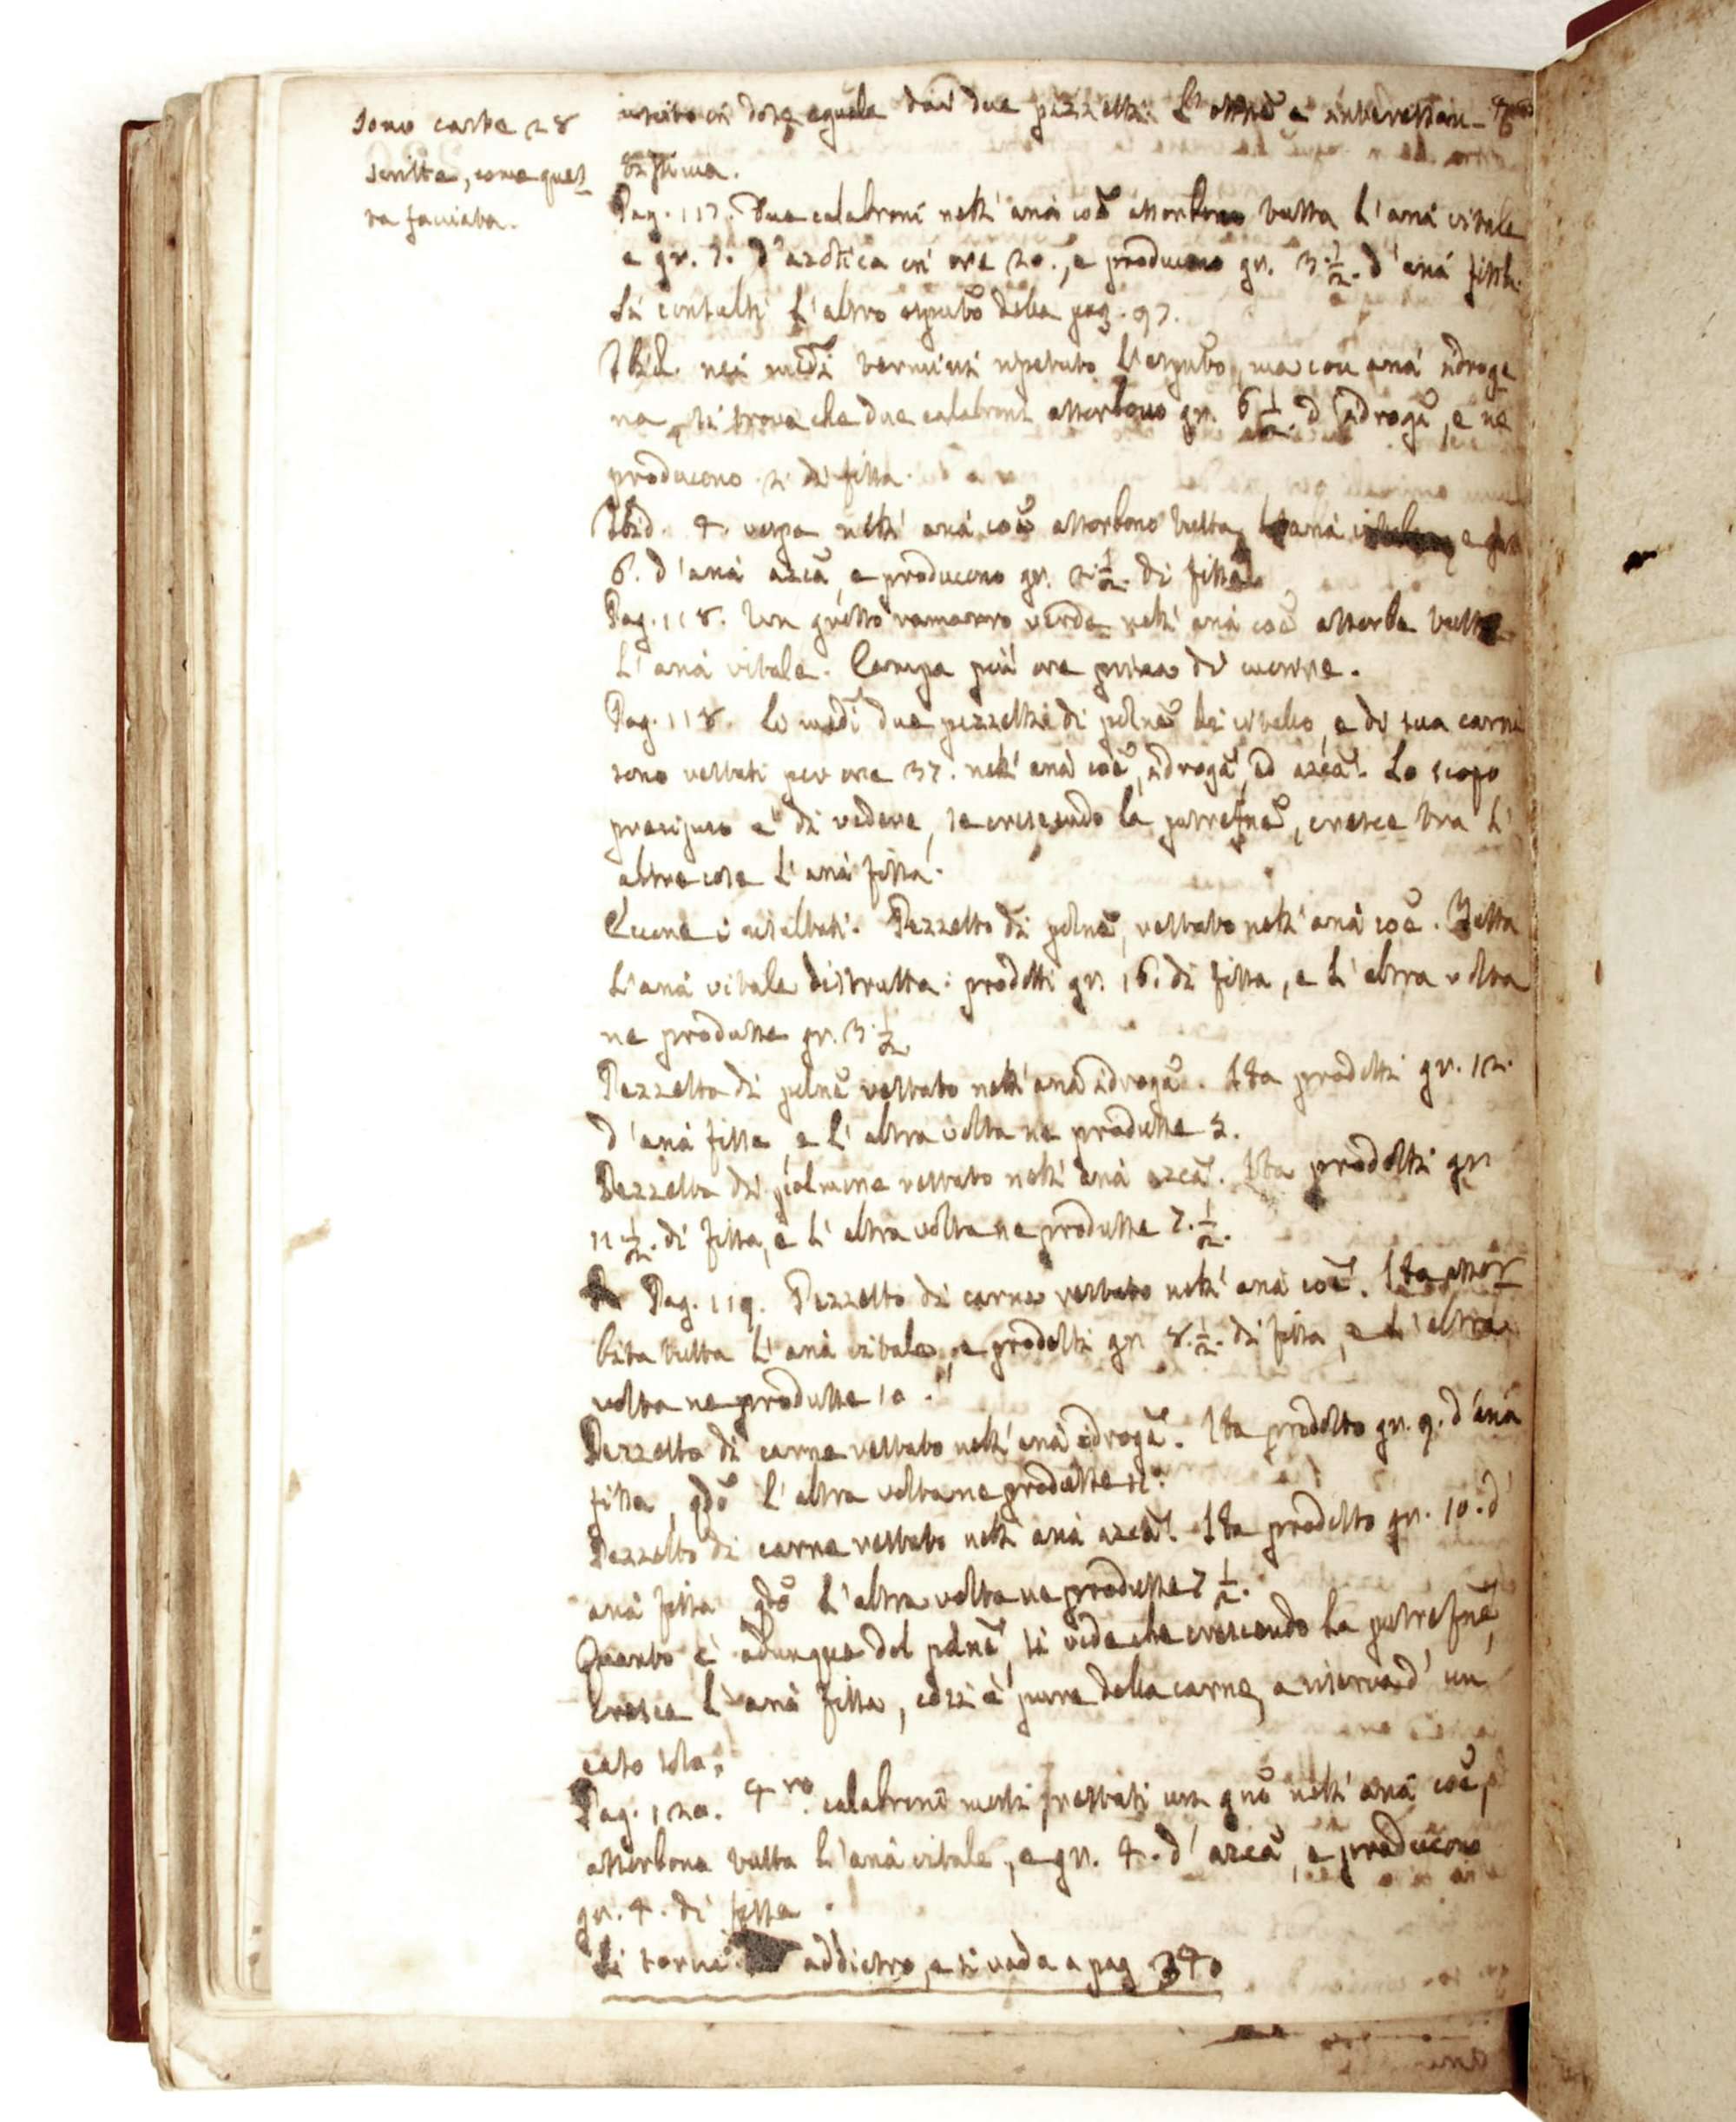 Sono carte 28
scritte, come ques-
ta facciata.
in dose eguale dai due pezzetti. L' è interessan-
tissima.
Pag. 117. Due calabroni nell' aria coē assorbono tutta l' aria vitale
e gr. 7. d' azotica in ore 20., e producono gr. 3. 1/2. d' aria fissa.
Si consulti l' altro della pag. 97.
Ibid. nei medī termini ripetuto l' , ma con aria idroge
na, si trova che due calabroni assorbono gr. 6 1/2. d' idrogā, e ne
producono 2 di fissa.
Ibid. 4. vespe nell' aria coē assorbono tutta l' aria vitale, e gr.
6. d' aria azcā, e producono gr. 2. 1/2. di fissa.
Pag. 118. Un grosso ramarro verde nell' aria coē assorbe tutta
l' aria vitale. Campa più ore prima di morire.
Pag. 118. Li medī due pezzetti di polnē di vitello, e di sua carne
sono restati per ore 37. nell' aria coē, idrogā, ed azcā. Lo scopo
precipuo è di vedere, se crescendo la putrefnē, cresce tra l'
altre cose l' aria fissa.
Eccone i risultati. Pezzetto di polnē, restato nell' aria coē. Tutta
l' aria vitale distrutta: prodotti gr. 16. di fissa, e l' altra volta
ne produsse gr. 3. 1/2
Pezzetto di polnē restato nell' aria idrogā. Sta prodotti gr. 12.
d' aria fissa, e l' altra volta ne produsse 3.
Pezzetto di polmone restato nell' aria azcā. Sta prodotti gr.
11 1/2. di fissa, e l' altra volta ne produsse 7. 1/2.
Pag. 119. Pezzetto di carne restato nell' aria coē. Sta assor
bita tutta l' aria vitale, e prodotti gr. 8. 1/2. di fissa, e l' altra
volta ne produsse 10.
Pezzetto di carne restato nell' aria idrogā. Sta prodotto gr. 9. d' aria
fissa, qdō l' altra volta ne produsse 11.
Pezzetto di carne restato nell' aria azcā. Sta prodotto gr. 10. d'
aria fissa qdō l' altra volta ne produsse 7 1/2.
Quanto è adunque del polnē, si vede che crescendo la putrefnē,
cresce l' aria fissa, così è pure della carne, a riserva d' un
caso solo.
Pag. 120. 4ro. calabroni morti restati nell' aria coē,
assorbono tutta l' aria vitale, e gr. 4. d' azcā, e producono
gr. 4. di fissa.
Si torni addietro, e si vada a pag 340